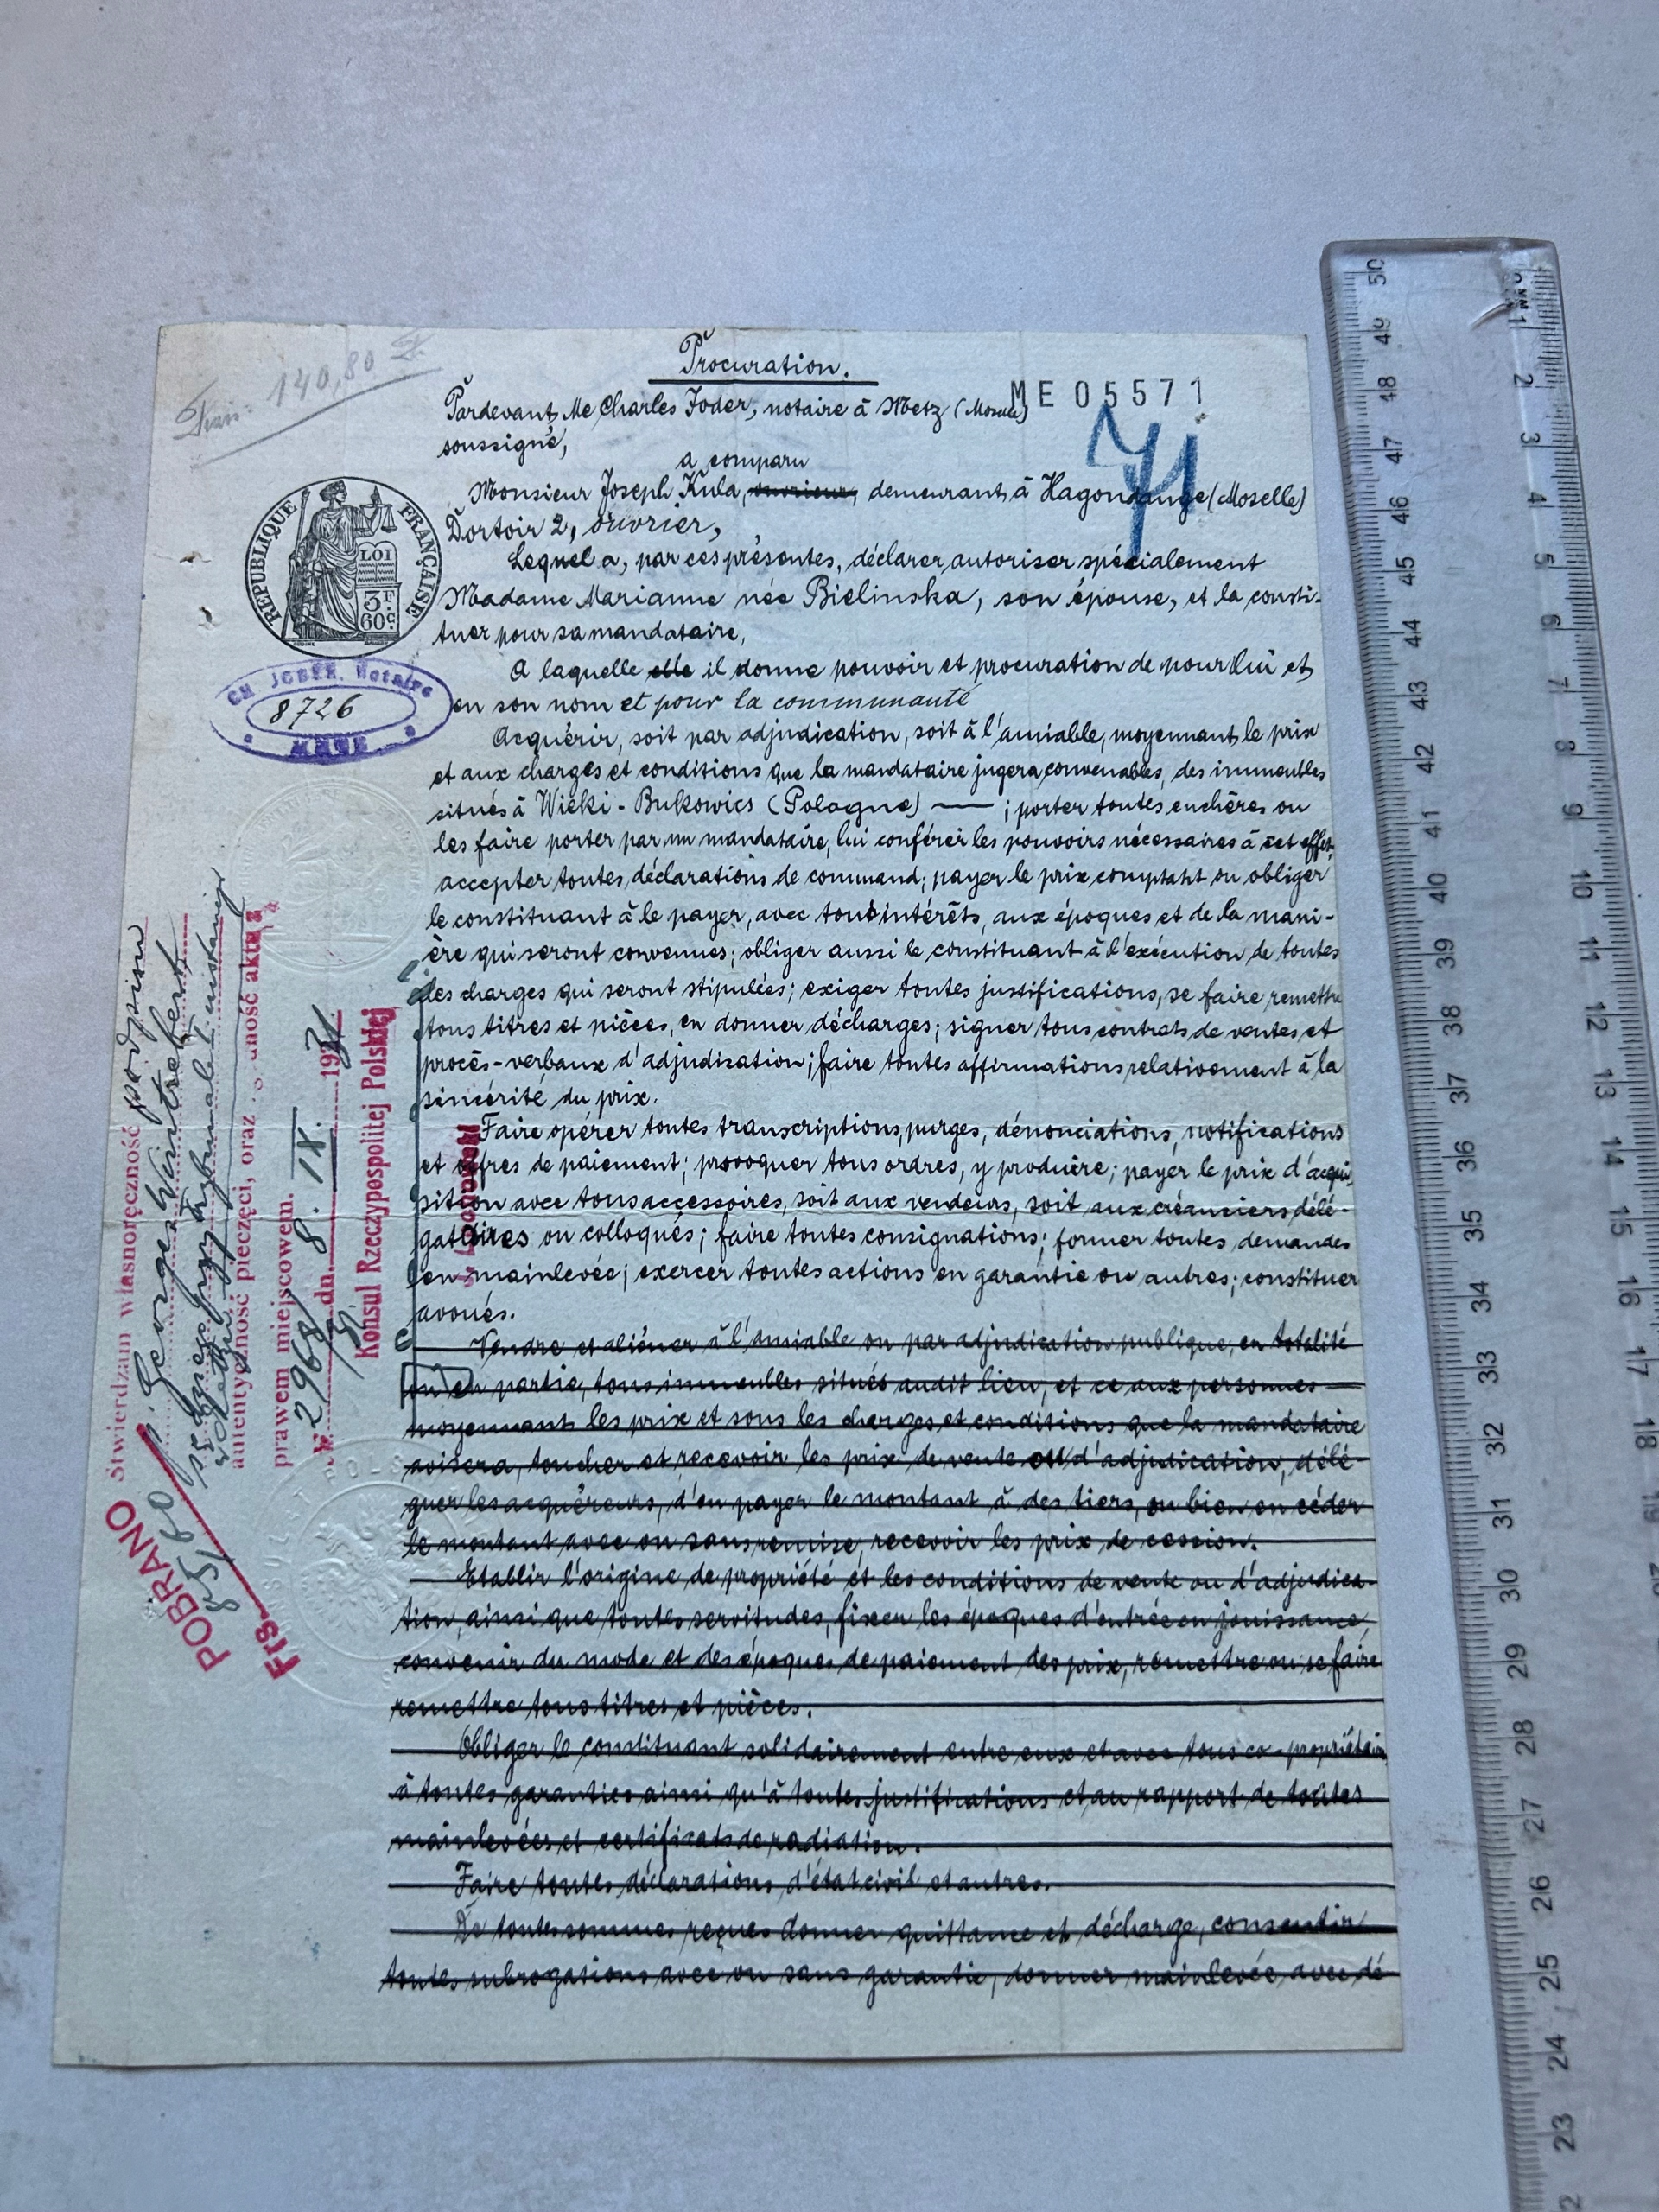 Procuration.
Frais: 140,80
ME05571
71
Pardevant Me Charles Joder, notaire à Metz (Moselle)
soussigné,
a comparu
Monsieur Joseph Kula, ouvrier, demeurant à Hagondange (Moselle)
Dortoir 2, ouvrier,
Lequel a, par ces présentes, déclarer autoriser spécialement
Madame Marianne née Bielinska, son épouse, et la consti-
tuer pour sa mandataire,
A laquelle elle il donne pouvoir et procuration de pour lui et
en son nom et pour la communauté
Acquérir, soit par adjudication, soit à l'amiable, moyennant le prix
et aux charges et conditions que la mandataire jugera convenables, des immeubles
situés à Wielki-Bukowics (Pologne) — ; porter toutes enchères ou
les faire porter par un mandataire, lui conférer les pouvoirs nécessaires à cet effet,
accepter toutes déclarations de command; payer le prix comptant ou obliger
le constituant à le payer, avec tous intérêts, aux époques et de la mani-
ère qui seront convenues; obliger aussi le constituant à l'exécution de toutes
les charges qui seront stipulées; exiger toutes justifications, se faire remettre
tous titres et pièces, en donner décharges; signer tous contrats de ventes et
procès-verbaux d'adjudication; faire toutes affirmations relativement à la
sincérité du prix.
Faire opérer toutes transcriptions, purges, dénonciations, notifications
et offres de paiement; provoquer tous ordres, y produire; payer le prix d'acqui
sition avec tous accessoires, soit aux vendeurs, soit aux créanciers délé-
gataires ou colloqués; faire toutes consignations; former toutes demandes
en mainlevée; exercer toutes actions en garantie ou autres; constituer
avoués.
Vendre et aliéner à l'amiable ou par adjudication publique, en totalité
ou en partie, tous immeubles situés audit lieu, et ce aux personnes
moyennant les prix et sous les charges et conditions que la mandataire
avisera, toucher et recevoir les prix de vente ou d'adjudication, délé-
guer les acquéreurs, d'en payer le montant à des tiers, ou bien en céder
le montant avec ou sans remise, recevoir les prix de cession.
Etablir l'origine de propriété et les conditions de vente ou d'adjudica-
tion, ainsi que toutes servitudes, fixer les époques d'entrée en jouissance,
convenir du mode et des époques de paiement des prix, remettre ou se faire
remettre tous titres et pièces.
Obliger le constituant solidairement entre eux et avec tous co-propriétaires
à toutes garanties ainsi qu'à toutes justifications et au rapport de toutes
mainlevées et certificats de radiation.
Faire toutes déclarations d'état civil et autres.
De toutes sommes reçues donner quittance et décharge, consentir
toutes subrogations avec ou sans garantie, donner mainlevée avec dé
RÉPUBLIQUE FRANÇAISE
LOI
3F
60c
CH. JODER, Notaire
8726
METZ
Stwierdzam własnoręczność podpisu
p. Georges Wintrebert
autentyczność pieczęci, oraz zgodność aktu z
prawem miejscowem.
№ 2968/31 dn. 8. IX. 1931
Konsul Rzeczypospolitej Polskiej
POBRANO
85,60
Frs.
50 49 48 47 46 45 44 43 42 41 40 39 38 37 36 35 34 33 32 31 30 29 28 27 26 25 24 23
1 2 3 4 5 6 7 8 9 10 11 12 13 14 15 16 17 18 19